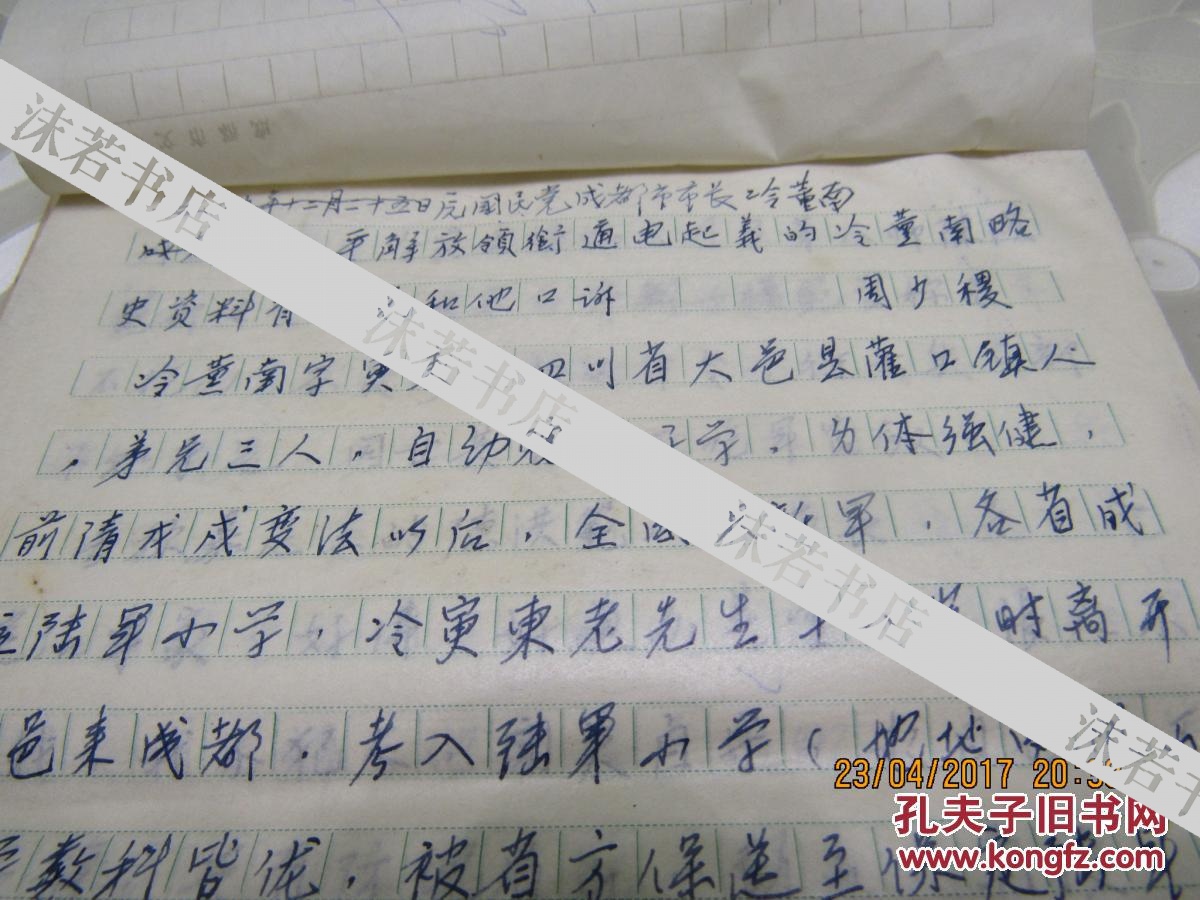 年十二月二十五日原国民党成都市市长冷薰南
平解放领衔通电起义的冷薰南略
史资料 和他口诉 周少稷
冷薰南字寅 四川省大邑县灌口镇人
，弟兄三人，自幼 学，身体强健，
前清戊戌变法以后，全国 军，各省成
立陆军小学，冷寅東老先生 时离开
邑来成都，考入陆军小学（地
数科皆优，被省方保送至保定陆
沫若书店
沫若书店
沫若书店
沫若书店
沫若书店
23/04/2017 20:
孔夫子旧书网
www.kongfz.com